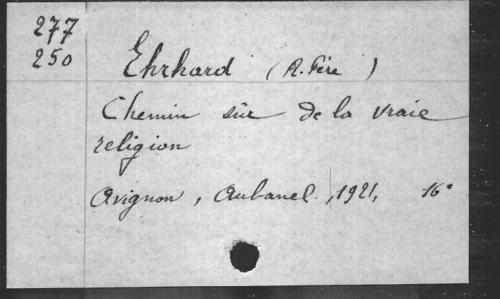 277
250
Ehrhard (R. Père)
Chemin sûr de la vraie
religion
Avignon, Aubanel, 1921, 16°